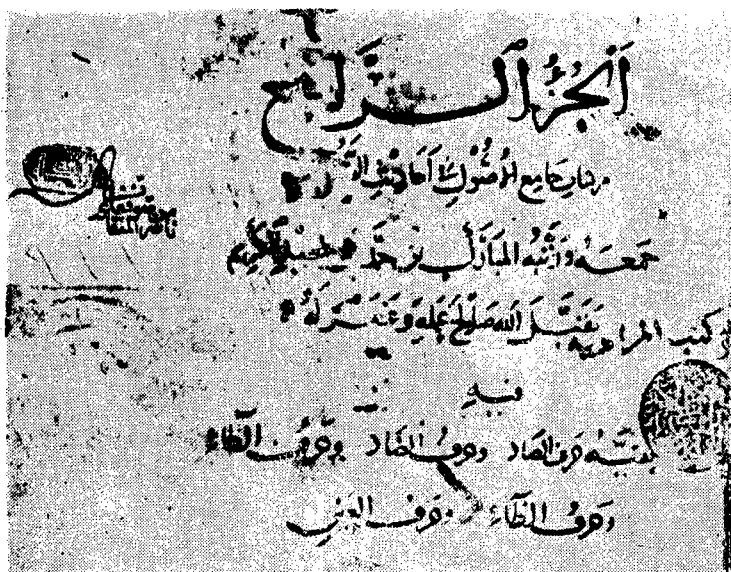 الجُزءُ الرَّابِع
من كتاب جامع الأصول في أحاديث الرسول
جمعه وألفه المبارك بن محمد بن عبد الكريم
تقبل الله صالح عمله وغفر زلله
فيه
بقية حرف الصاد وحرف الضاد وحرف الطاء
وحرف الظاء وحرف العين